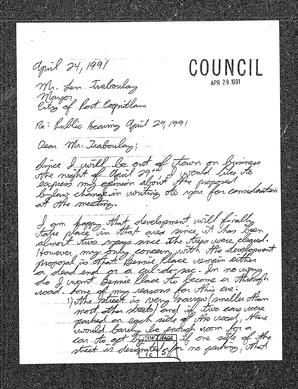 April 24, 1991
COUNCIL
APR 29 1991
Mr. Len Traboulay
Mayor
City of Port Coquitlam
Re: Public Hearing April 29, 1991
Dear Mr. Traboulay;
Since I will be out of town on business
the night of April 29th I would like to
express my opinion about the proposed
bylaw change in writing to you for consideration
at the meeting.
I am happy that development will finally
take place in that area since it has been
almost two years since the trees were cleared.
However my key concern with the development
proposal is that Bennie Place remain either
a dead end or a cul-de-sac. In no way
do I want Bennie Place to become a through
road. Some of my reasons for this are:
1) The street is very narrow (smaller than
most other streets) and if two cars were
parked on each side of the road, there
would barely be enough room for a
car to get by. If one side of the
street is designated no parking, that